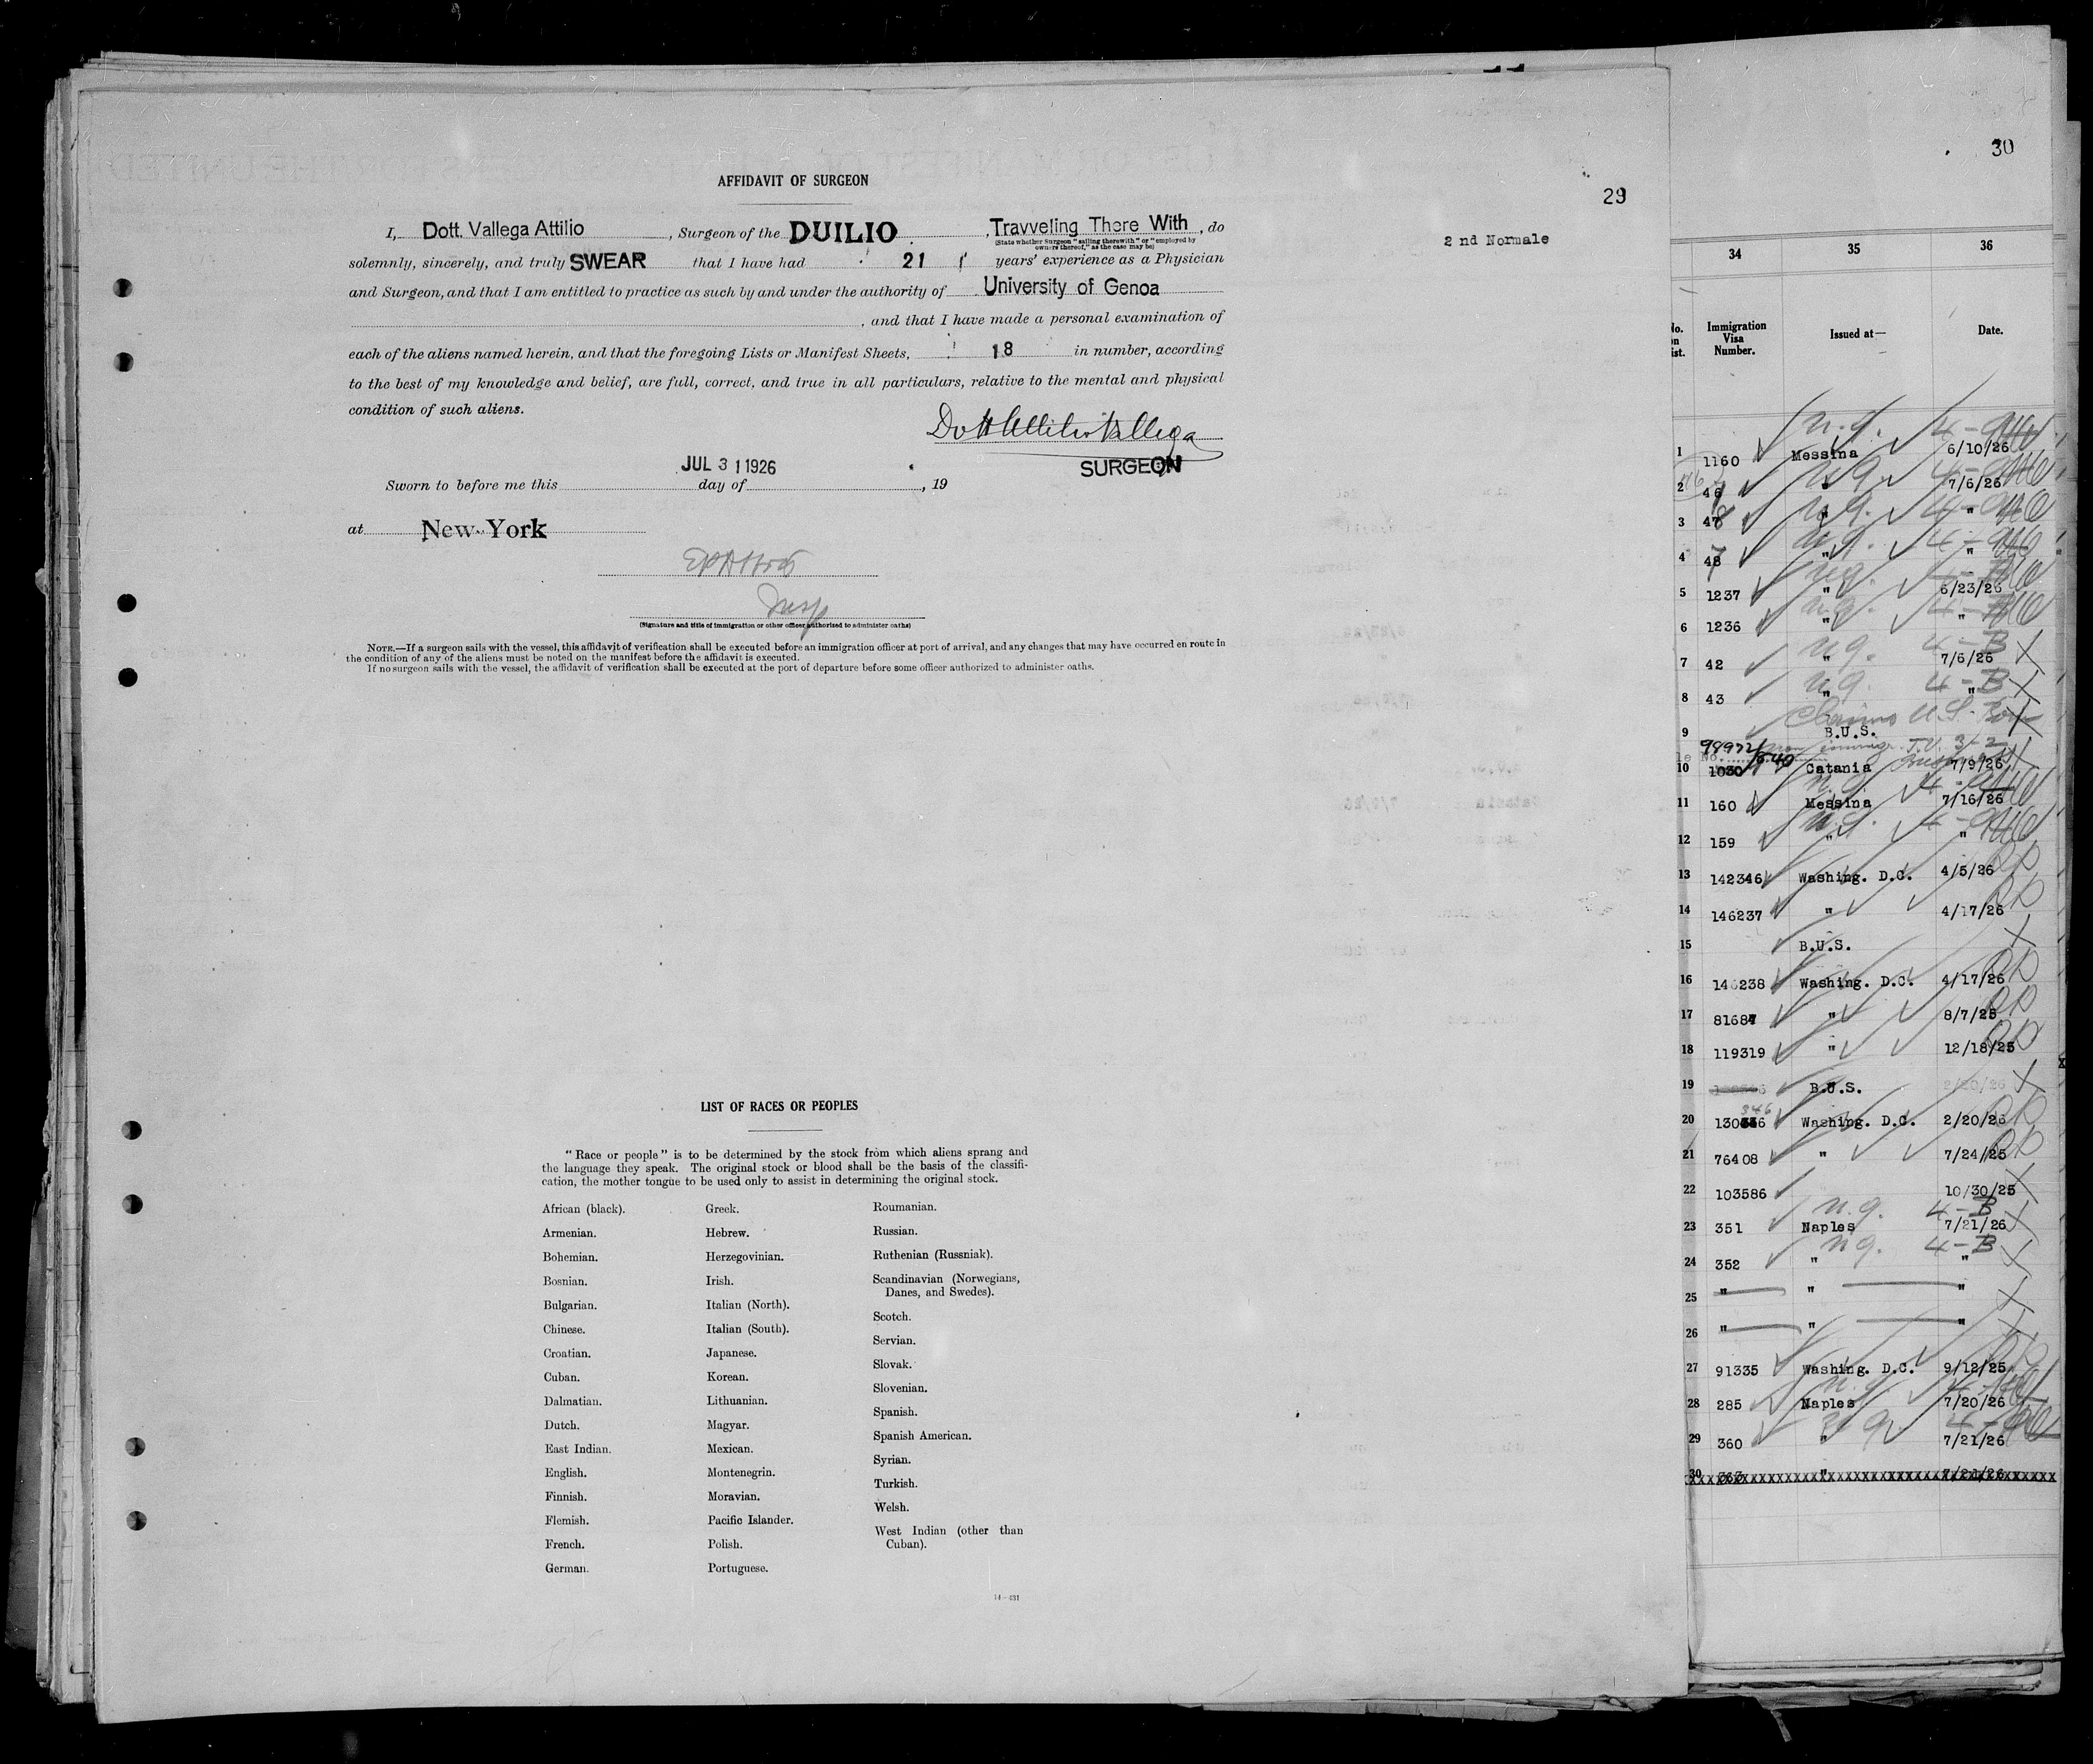 AFFIDAVIT OF SURGEON
29
I, Dott. Vallega Attilio, Surgeon of the DUILIO, Travveling There With, do
(State whether Surgeon "sailing therewith" or "employed by
owners thereof," as the case may be)
2 nd Normale
solemnly, sincerely, and truly SWEAR that I have had 21 years' experience as a Physician
and Surgeon, and that I am entitled to practice as such by and under the authority of University of Genoa
, and that I have made a personal examination of
each of the aliens named herein, and that the foregoing Lists or Manifest Sheets, 18 in number, according
to the best of my knowledge and belief, are full, correct, and true in all particulars, relative to the mental and physical
condition of such aliens.
Dott Attilio Vallega
SURGEON
JUL 31 1926
Sworn to before me this day of , 19
at New York
Insp
(Signature and title of immigration or other officer authorized to administer oaths)
NOTE.—If a surgeon sails with the vessel, this affidavit of verification shall be executed before an immigration officer at port of arrival, and any changes that may have occurred en route in
the condition of any of the aliens must be noted on the manifest before the affidavit is executed.
If no surgeon sails with the vessel, the affidavit of verification shall be executed at the port of departure before some officer authorized to administer oaths.
LIST OF RACES OR PEOPLES
"Race or people" is to be determined by the stock from which aliens sprang and
the language they speak. The original stock or blood shall be the basis of the classifi-
cation, the mother tongue to be used only to assist in determining the original stock.
African (black).
Armenian.
Bohemian.
Bosnian.
Bulgarian.
Chinese.
Croatian.
Cuban.
Dalmatian.
Dutch.
East Indian.
English.
Finnish.
Flemish.
French.
German.
Greek.
Hebrew.
Herzegovinian.
Irish.
Italian (North).
Italian (South).
Japanese.
Korean.
Lithuanian.
Magyar.
Mexican.
Montenegrin.
Moravian.
Pacific Islander.
Polish.
Portuguese.
Roumanian.
Russian.
Ruthenian (Russniak).
Scandinavian (Norwegians,
Danes, and Swedes).
Scotch.
Servian.
Slovak.
Slovenian.
Spanish.
Spanish American.
Syrian.
Turkish.
Welsh.
West Indian (other than
Cuban).
14—431
30
34 35 36
No.
on
list.
Immigration
Visa
Number.
Issued at—
Date.
n.q. 4-
1 1160 Messina 6/10/26
n.q. 4-
2 46 " 7/6/26
n.q. 4-
3 47 " "
n.q. 4-
4 48 " "
n.q. 4-
5 1237 " 6/23/26
n.q. 4-
6 1236 " "
n.q. 4-B
7 42 " 7/6/26
n.q. 4-B
8 43 " "
Claims U.S. Born
9 B.U.S.
non immigr. T.V. 3-2
10 1030 Catania 7/9/26
n.q. 4-
11 160 Messina 7/16/26
n.q. 4-
12 159 " "
13 142346 Washing. D.C. 4/5/26
14 146237 " 4/17/26
15 B.U.S.
16 146238 Washing. D.C. 4/17/26
17 81687 " 8/7/25
18 119319 " 12/18/25
19 B.U.S. 2/20/26
346
20 130 6 Washing. D.C. 2/20/26
21 76408 " 7/24/25
22 103586 10/30/25
n.q. 4-B
23 351 Naples 7/21/26
n.q. 4-B
24 352 " "
25 " " "
26 " " "
27 91335 Washing. D.C. 9/12/25
n.q. 4-
28 285 Naples 7/20/26
4-
29 360 " 7/21/26
30 363 " 7/21/26